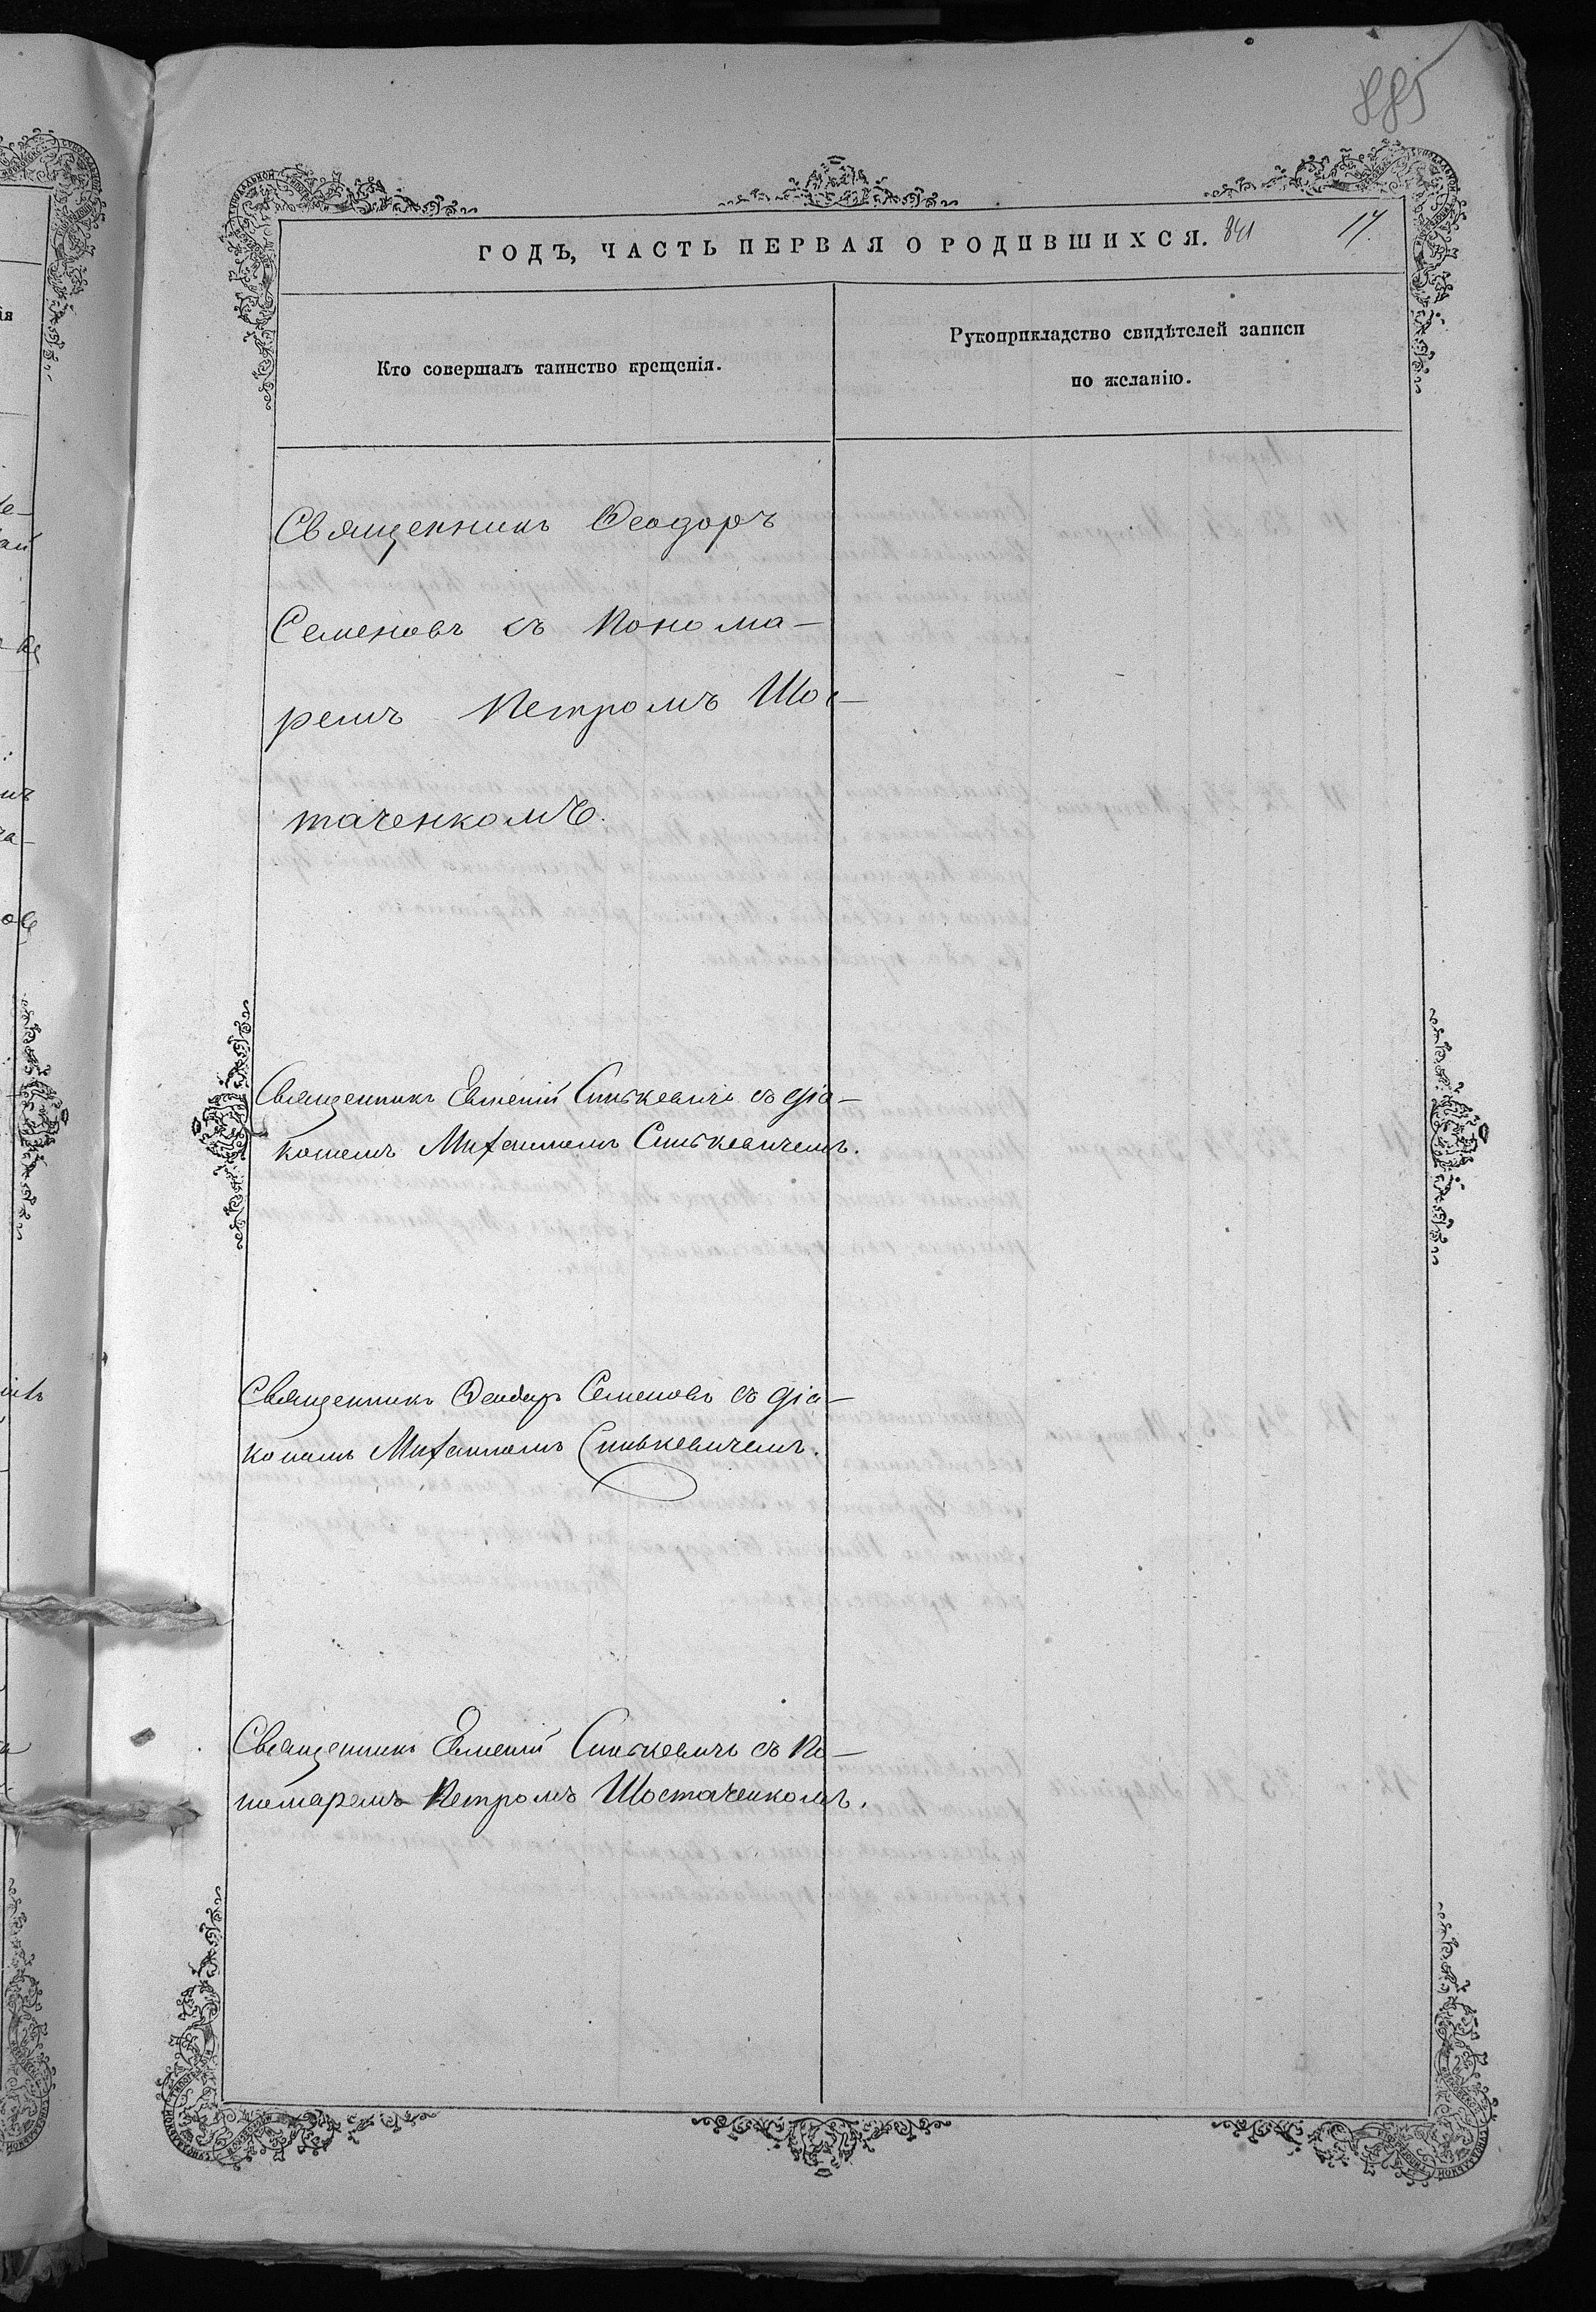 885
ГОДЪ, ЧАСТЬ ПЕРВАЯ О РОДИВШИХСЯ. 841
Кто совершалъ таинство крещенія.
Рукоприкладство свидѣтелей записи
по желанію.
Священникъ Ѳеодоръ
Семеновъ съ Понома-
ремъ Петромъ Шос-
таченкомъ.
Священникъ Евменій Синькевичъ съ діа-
кономъ Михаиломъ Синькевичемъ.
Священникъ Ѳеодоръ Семеновъ съ діа-
кономъ Михаиломъ Синькевичемъ.
Священникъ Евменій Синькевичъ съ По-
номаремъ Петромъ Шостаченкомъ.